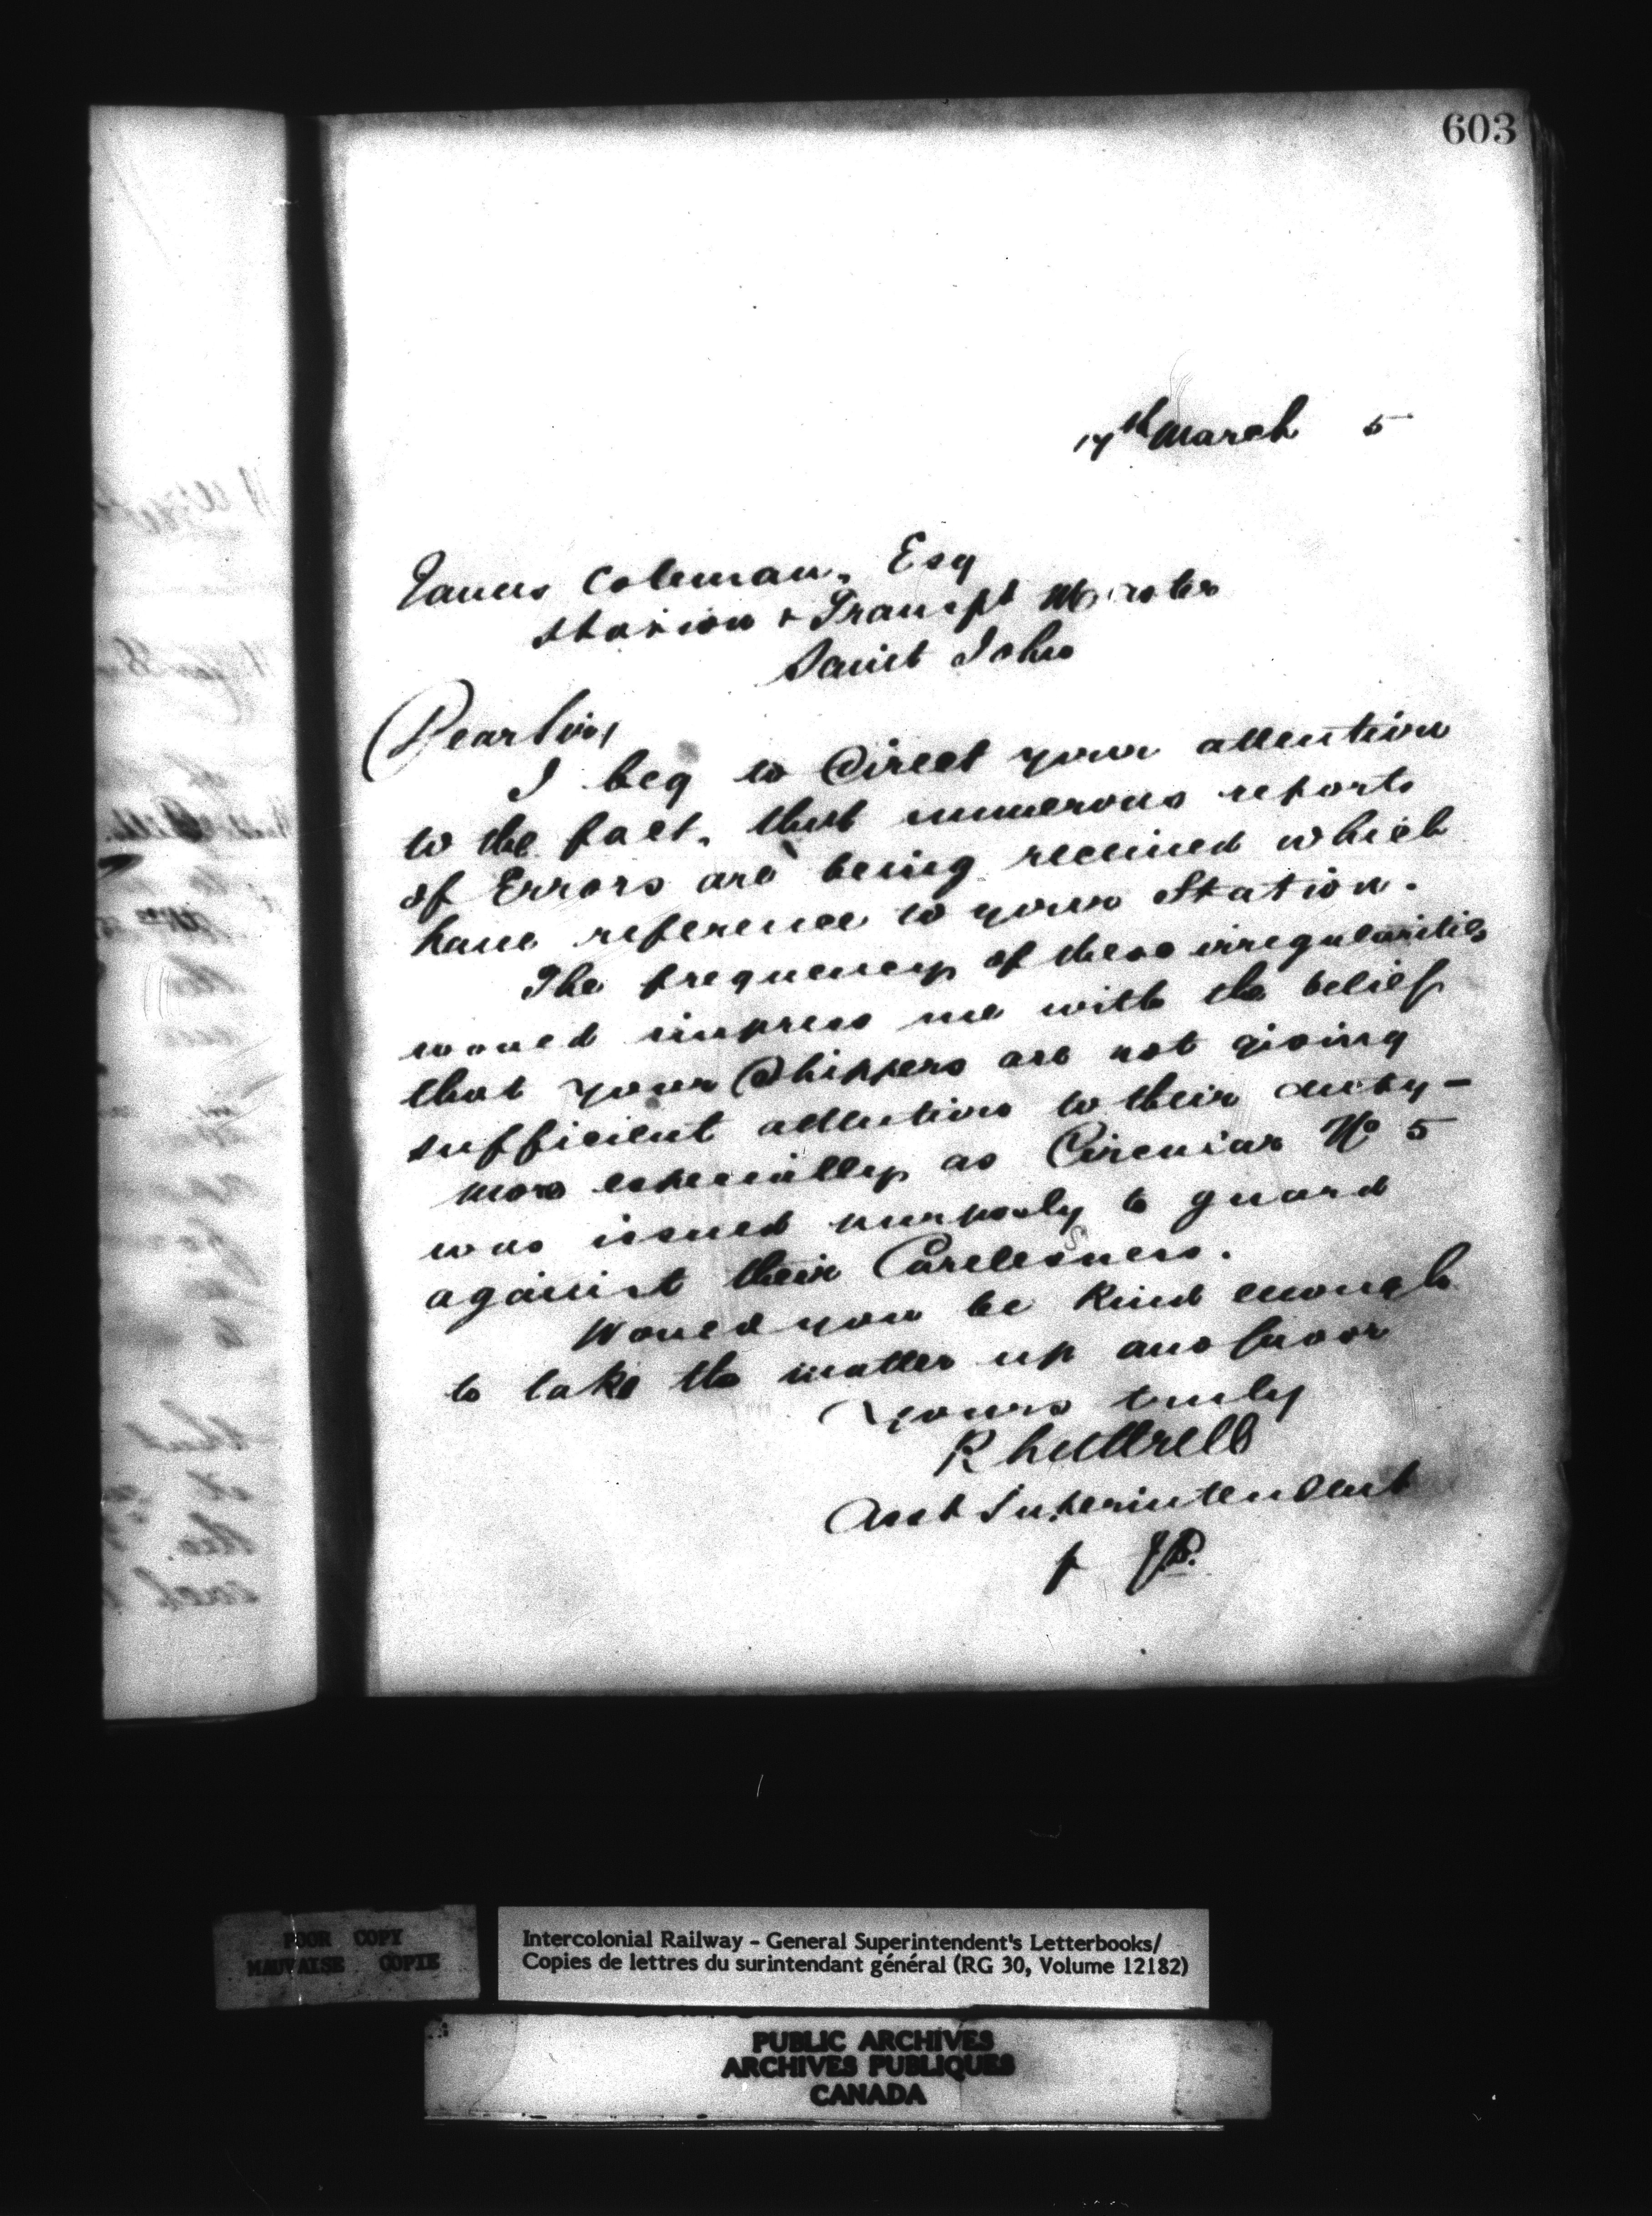 603
17th March 5
James Coleman, Esq
Station & Transpt Master
Saint John
Dear Sir,
I beg to Direct your attention
to the fact, that numerous reports
of Errors are being received which
have reference to your Station.
The frequency of these irregularities
would impress me with the belief
that your Shippers are not giving
sufficient attention to their duty—
more especially as Circular No 5
was issued purposly to guard
against their Carelessness.
Would you be kind enough
to take the matter up and favor
Yours truly
R Luttrell
Asst Superintendent
p
POOR COPY
MAUVAISE COPIE
Intercolonial Railway - General Superintendent's Letterbooks/
Copies de lettres du surintendant général (RG 30, Volume 12182)
PUBLIC ARCHIVES
ARCHIVES PUBLIQUES
CANADA